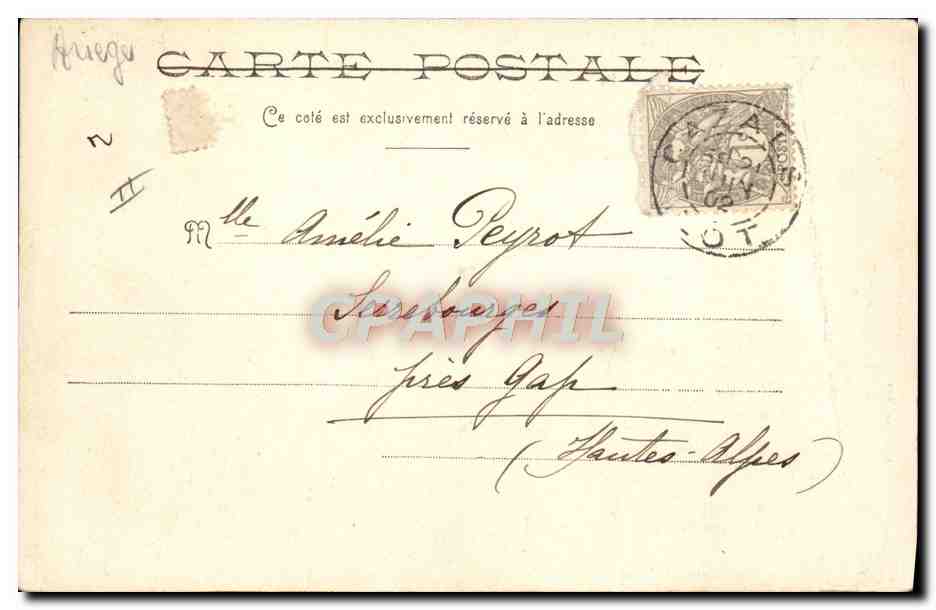 Ariège
CARTE POSTALE
Ce coté est exclusivement réservé à l'adresse
2
II
Mlle Amélie Peyrot
Serrebourges
CPAPHIL
près Gap
(Hautes-Alpes)
CALALS
02
LOT